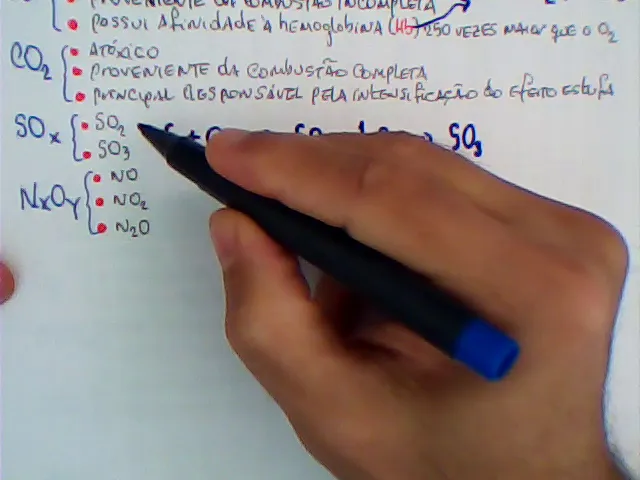 PROVENIENTE DA COMBUSTÃO INCOMPLETA
• POSSUI AFINIDADE À HEMOGLOBINA (Hb) 250 VEZES MAIOR QUE O O2
CO2 • ATÓXICO
• PROVENIENTE DA COMBUSTÃO COMPLETA
• PRINCIPAL RESPONSÁVEL PELA INTENSIFICAÇÃO DO EFEITO ESTUFA
SOx • SO2 SO3
• SO3
NxOy • NO
• NO2
• N2O